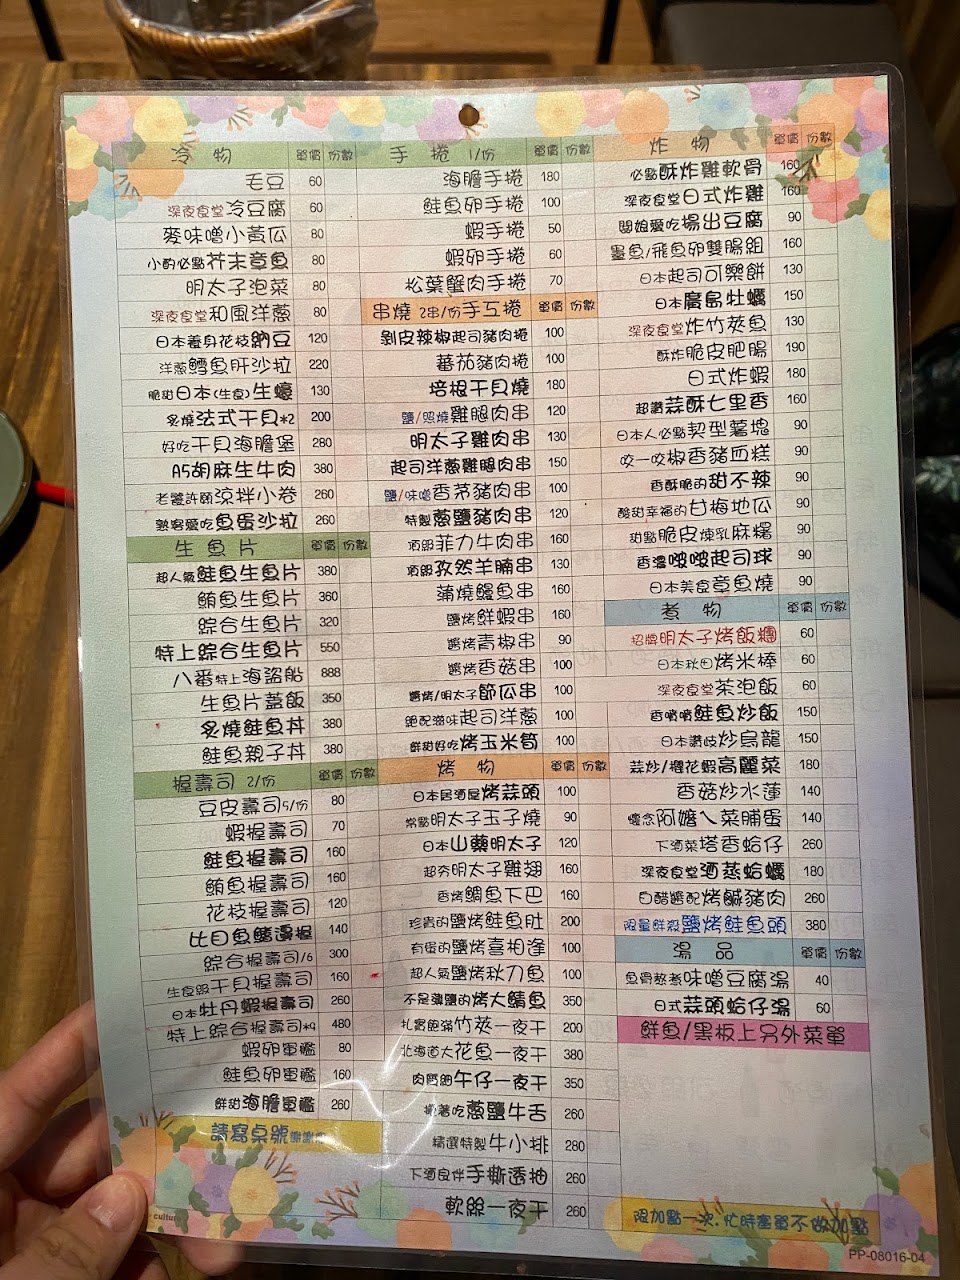 冷物 單價 份數
毛豆 60
深夜食堂冷豆腐 60
麥味噌小黃瓜 80
小酌必點芥末章魚 80
明太子泡菜 80
深夜食堂和風洋蔥 80
日本養身花枝納豆 120
洋蔥鱈魚肝沙拉 220
脆甜日本(生食)生蠔 130
炙燒法式干貝*2 200
好吃干貝海膽堡 280
A5胡麻生牛肉 380
老饕許願涼拌小卷 260
熟客愛吃魚蛋沙拉 260
生魚片 單價 份數
超人氣鮭魚生魚片 380
鮪魚生魚片 360
綜合生魚片 320
特上綜合生魚片 550
八番特上海盜船 888
生魚片蓋飯 350
炙燒鮭魚丼 380
鮭魚親子丼 380
握壽司 2/份 單價 份數
豆皮壽司5/份 80
蝦握壽司 70
鮭魚握壽司 160
鮪魚握壽司 160
花枝握壽司 120
比目魚鰭邊握 140
綜合握壽司/6 300
生食級干貝握壽司 160
日本牡丹蝦握壽司 260
特上綜合握壽司*9 480
蝦卵軍艦 80
鮭魚卵軍艦 160
鮮甜海膽軍艦 260
請寫桌號謝謝
手捲 1/份 單價 份數
海膽手捲 180
鮭魚卵手捲 100
蝦手捲 50
蝦卵手捲 60
松葉蟹肉手捲 70
串燒 2串/份手工捲 單價 份數
剝皮辣椒起司豬肉捲 100
蕃茄豬肉捲 100
培根干貝燒 180
鹽/照燒雞腿肉串 120
明太子雞肉串 130
起司洋蔥雞腿肉串 150
鹽/味噌香茅豬肉串 100
特製蔥鹽豬肉串 120
頂級菲力牛肉串 160
頂級孜然羊腩串 130
蒲燒鰻魚串 160
鹽烤鮮蝦串 160
醬烤青椒串 90
醬烤香菇串 100
醬烤/明太子節瓜串 100
絕配滋味起司洋蔥 100
鮮甜好吃烤玉米筍 100
烤物 單價 份數
日本居酒屋烤蒜頭 100
常點明太子玉子燒 90
日本山藥明太子 120
超夯明太子雞翅 160
香烤鯛魚下巴 160
珍貴的鹽烤鮭魚肚 200
有蛋的鹽烤喜相逢 100
超人氣鹽烤秋刀魚 100
不是薄鹽的烤大鯖魚 350
扎實飽滿竹莢一夜干 200
北海道大花魚一夜干 380
肉質細午仔一夜干 350
捲著吃蔥鹽牛舌 260
精選特製牛小排 280
下酒良伴手撕透抽 260
軟絲一夜干 260
炸物 單價 份數
必點酥炸雞軟骨 160
深夜食堂日式炸雞 160
闆娘愛吃揚出豆腐 90
墨魚/飛魚卵雙腸組 160
日本起司可樂餅 130
日本廣島牡蠣 150
深夜食堂炸竹莢魚 130
酥炸脆皮肥腸 190
日式炸蝦 180
超讚蒜酥七里香 160
日本人必點契型薯塊 90
咬一咬椒香豬血糕 90
香酥脆的甜不辣 90
酸甜幸福的甘梅地瓜 90
甜點脆皮煉乳麻糬 90
香濃啵啵起司球 90
日本美食章魚燒 90
煮物 單價 份數
招牌明太子烤飯糰 60
日本秋田烤米棒 60
深夜食堂茶泡飯 60
香噴噴鮭魚炒飯 150
日本讚岐炒烏龍 150
蒜炒/櫻花蝦高麗菜 180
香菇炒水蓮 140
懷念阿嬤ㄟ菜脯蛋 140
下酒菜塔香蛤仔 260
深夜食堂酒蒸蛤蠣 180
白醋醬配烤鹹豬肉 260
限量鮮殺鹽烤鮭魚頭 380
湯品 單價 份數
魚骨熬煮味噌豆腐湯 40
日式蒜頭蛤仔湯 60
鮮魚/黑板上另外菜單
限加點一次.忙時塞單不做加點
PP-08016-04